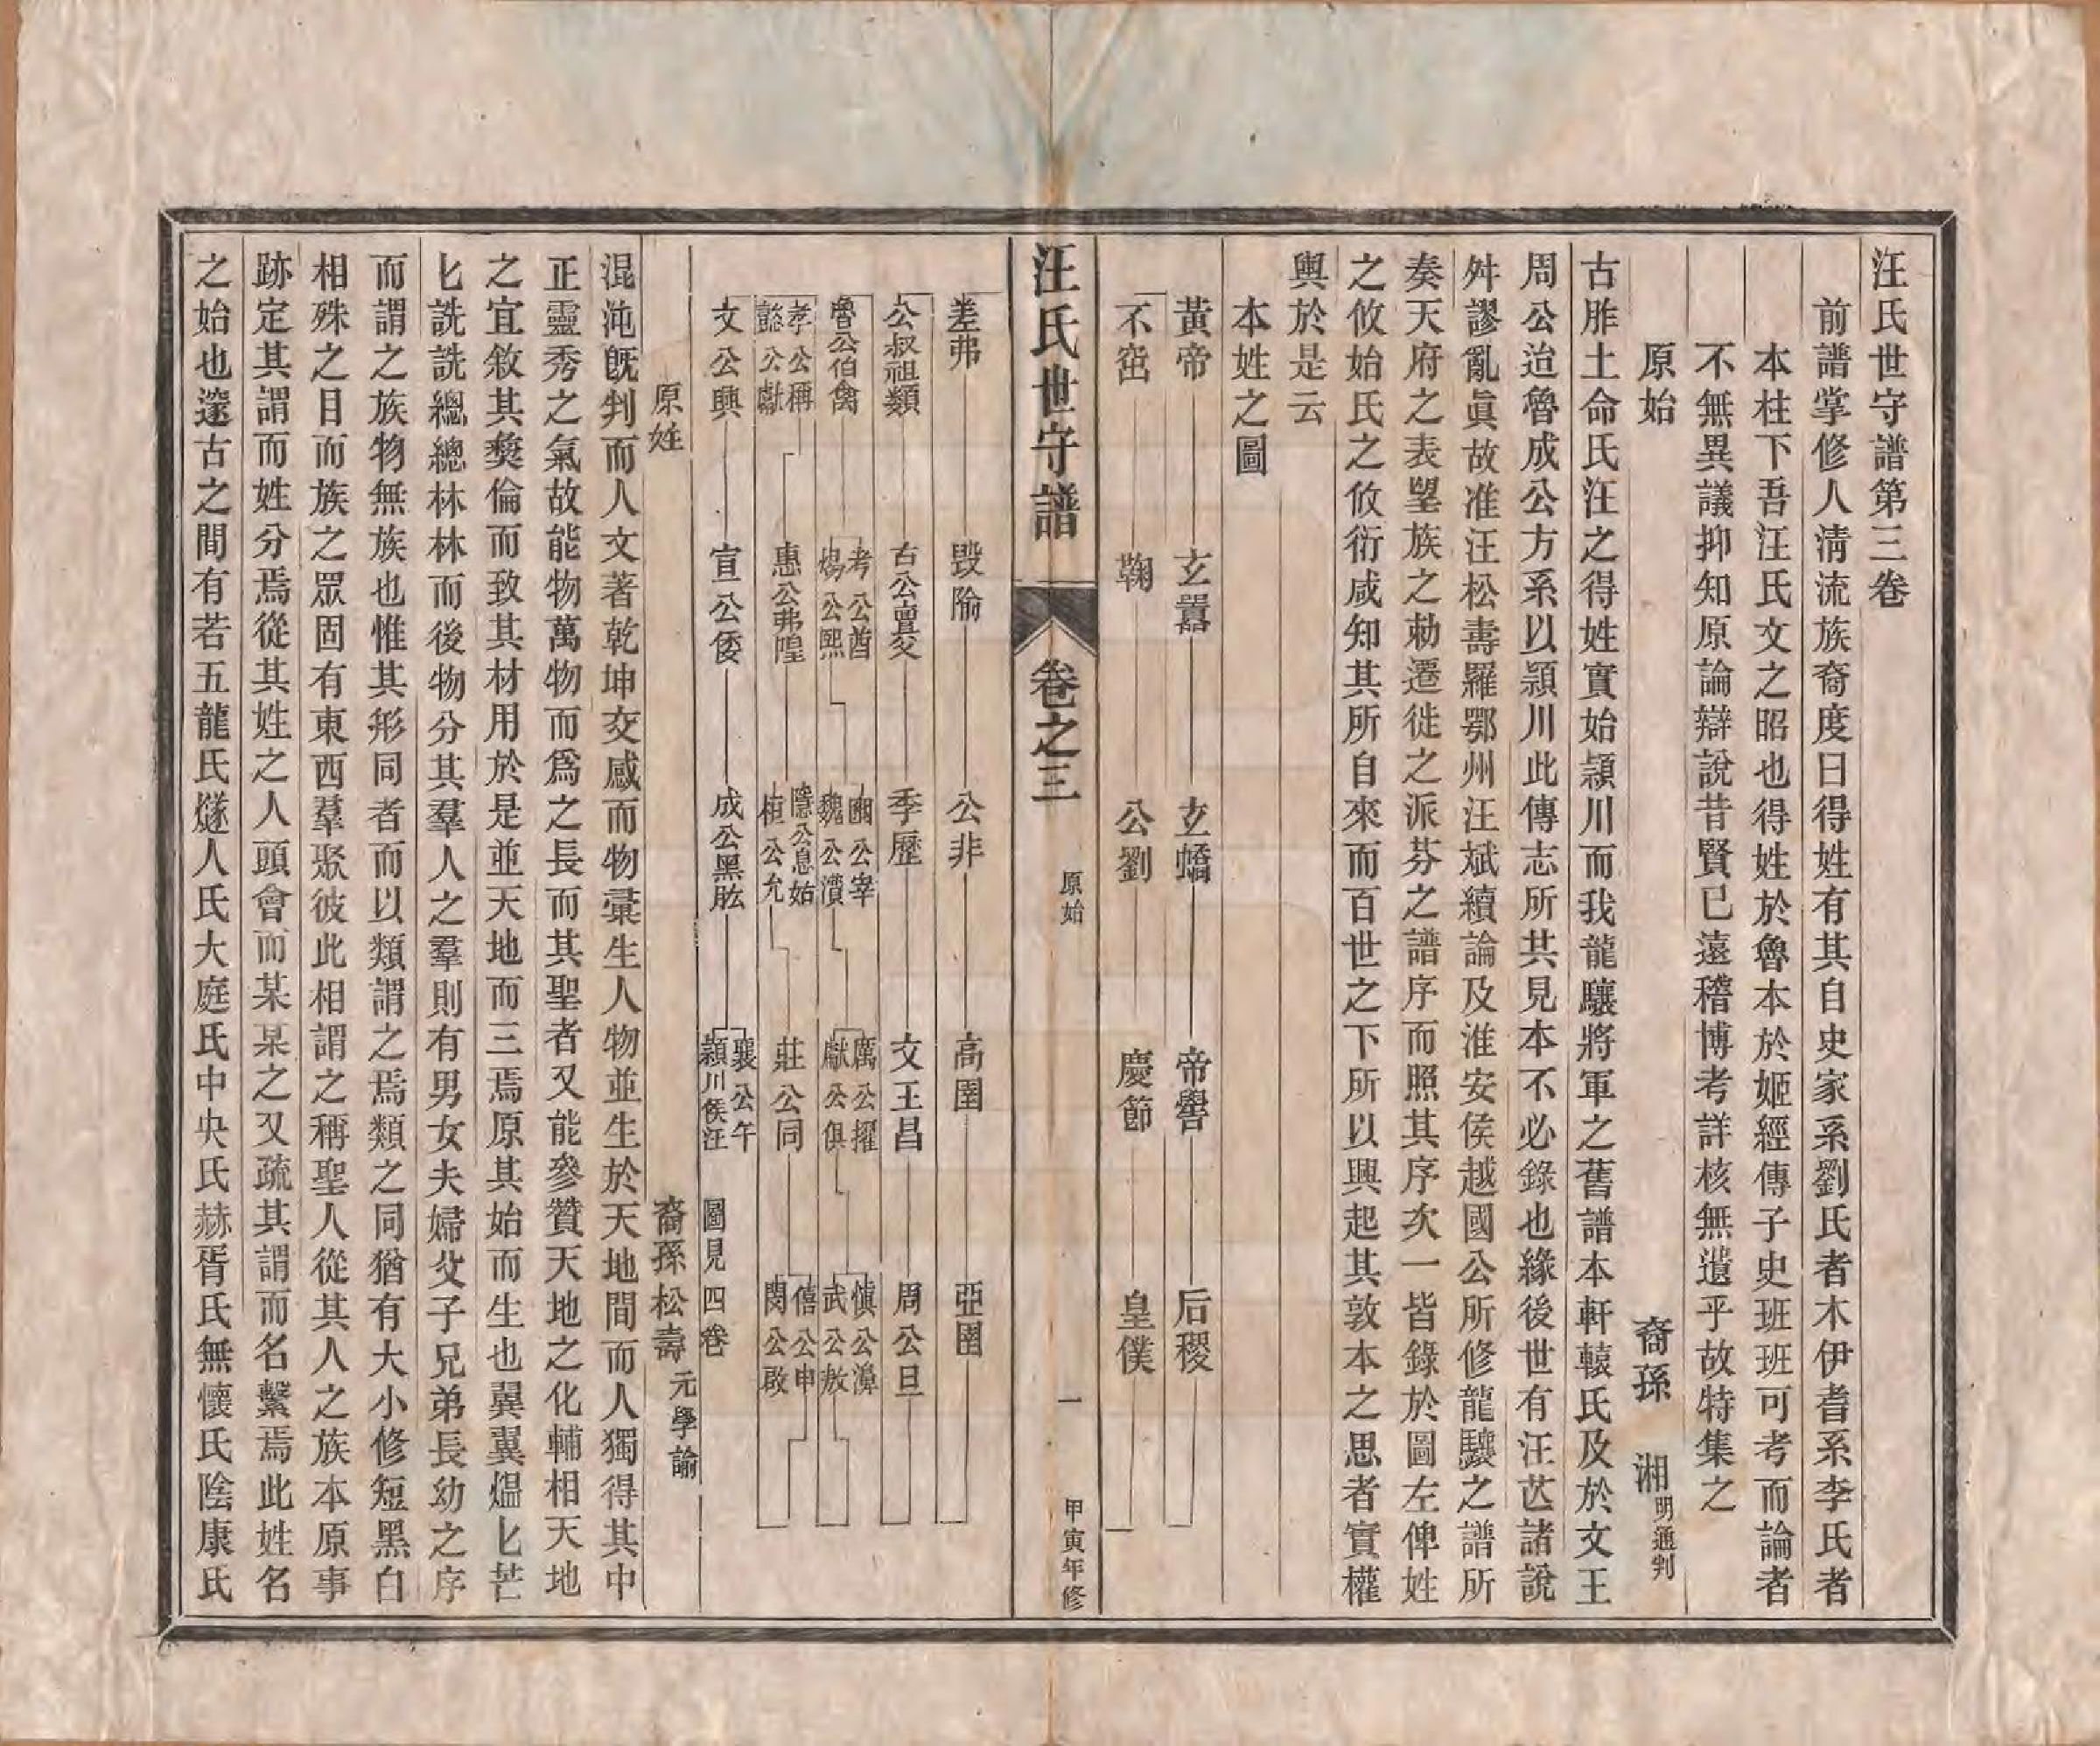 汪氏世守譜第三卷
前譜掌修人淸流族裔度曰得姓有其自史家系劉氏者木伊耆系李氏者
本柱下吾汪氏文之昭也得姓於魯本於姬經傳子史班班可考而論者
不無異議抑知原論辯說昔賢已遠稽博考詳核無遺乎故特集之
原始
裔孫 湘 明通判
古胙土命氏汪之得姓實始潁川而我龍驤將軍之舊譜本軒轅氏及於文王
周公迨魯成公方系以潁川此傳志所共見本不必錄也緣後世有汪芒諸說
舛謬亂眞故准汪松壽羅鄂州汪斌續論及淮安侯越國公所修龍驤之譜所
奏天府之表塱族之勅遷徙之派芬之譜序而照其序次一皆錄於圖左俾姓
之攸始氏之攸衍咸知其所自來而百世之下所以興起其敦本之思者實權
輿於是云
本姓之圖
黃帝 玄囂 玄蟜 帝嚳 后稷
不窋 鞠 公劉 慶節 皇僕
汪氏世守譜 卷之三 原始 一 甲寅年修
差弗 毀隃 公非 高圉 亞圉
公叔祖類 古公亶父 季歷 文王昌 周公旦
魯公伯禽 考公酋 煬公熙 幽公宰 魏公㵒 厲公擢 獻公俱 愼公濞 武公敖
孝公稱 懿公戲 惠公弗隍 隱公息姑 桓公允 莊公同 僖公申 閔公啟
文公興 宣公倭 成公黑肱 襄公午 潁川侯汪 圖見四卷
原姓
裔孫松壽 元學諭
混沌旣判而人文著乾坤交感而物彙生人物並生於天地間而人獨得其中
正靈秀之氣故能物萬物而爲之長而其聖者又能參贊天地之化輔相天地
之宜敘其彜倫而致其材用於是並天地而三焉原其始而生也翼翼熅匕芒
匕詵詵總總林林而後物分其羣人之羣則有男女夫婦父子兄弟長幼之序
而謂之族物無族也惟其形同者而以類謂之焉類之同猶有大小修短黑白
相殊之目而族之眾固有東西羣聚彼此相謂之稱聖人從其人之族本原事
跡定其謂而姓分焉從其姓之人頭會而某某之又疏其謂而名繫焉此姓名
之始也邃古之間有若五龍氏燧人氏大庭氏中央氏赫胥氏無懷氏陰康氏